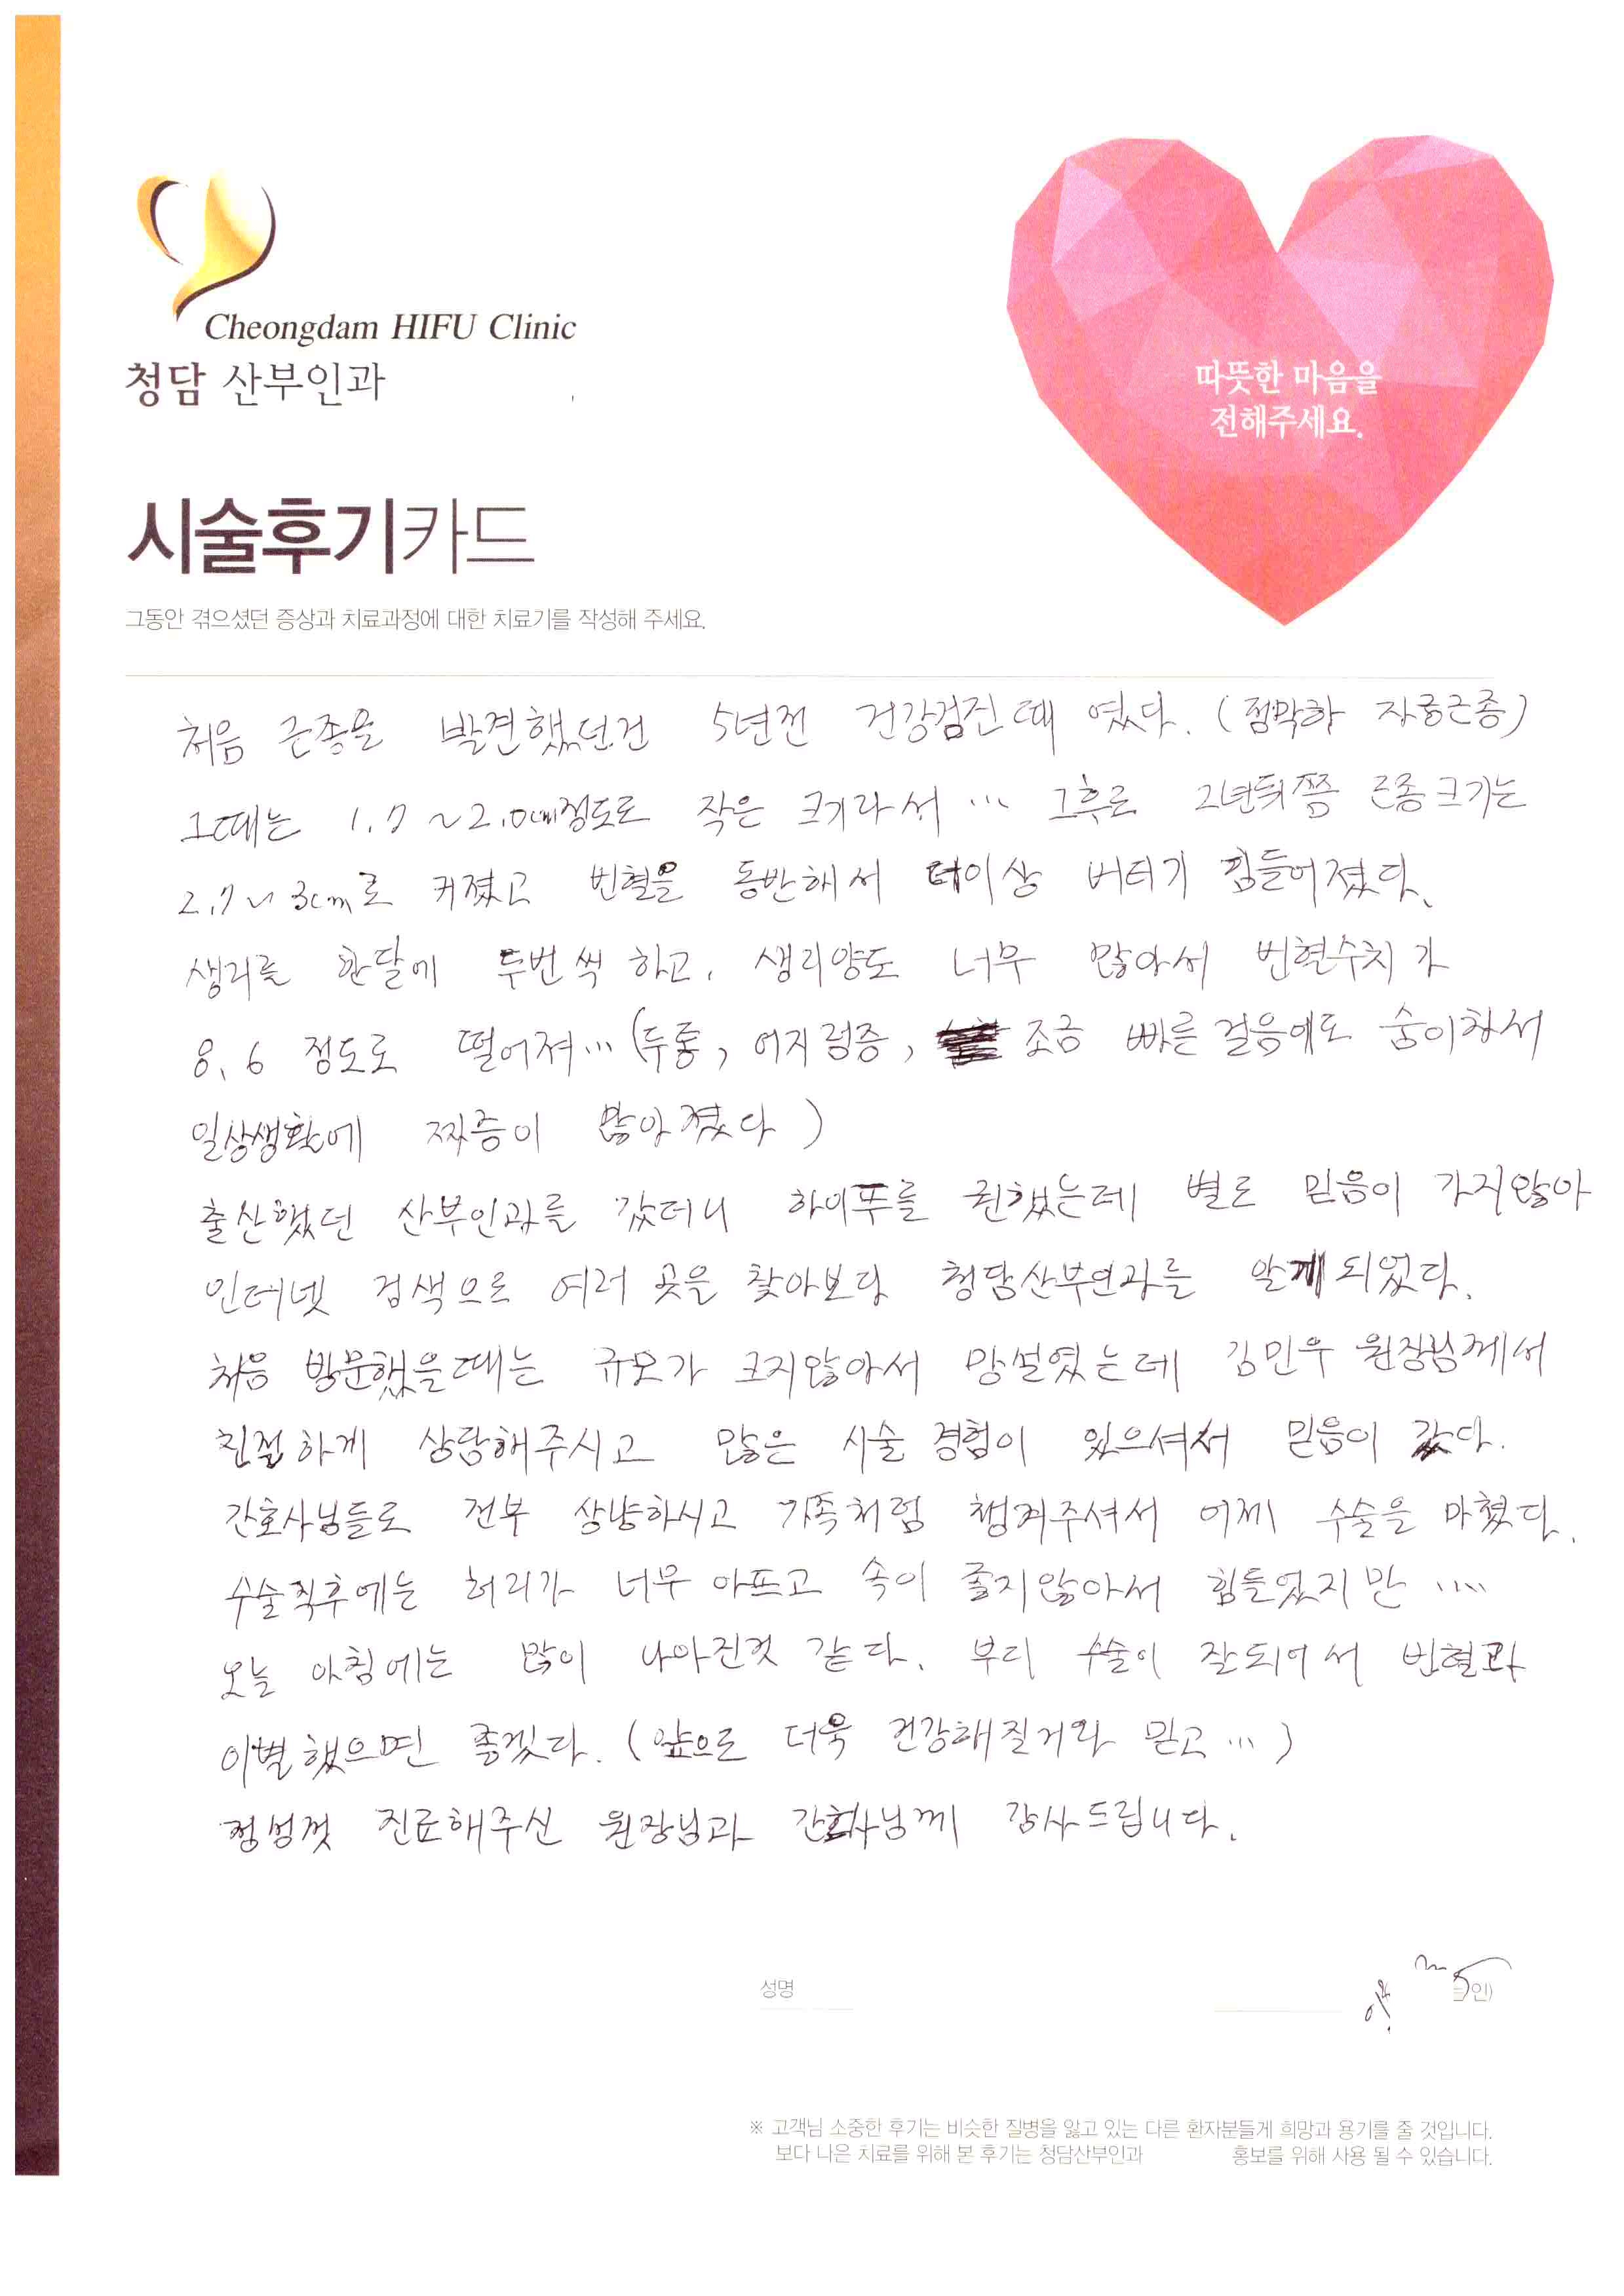 Cheongdam HIFU Clinic
청담 산부인과
따뜻한 마음을
전해주세요.
시술후기카드
그동안 겪으셨던 증상과 치료과정에 대한 치료기를 작성해 주세요.
처음 근종을 발견했던건 5년전 건강검진때 였다. (점막하 자궁근종)
그때는 1.7 ~ 2.0cm정도로 작은 크기라서 ... 그후로 2년뒤쯤 근종크기는
2.7 ~ 3cm로 커졌고 빈혈을 동반해서 더이상 버티기 힘들어졌다.
생리를 한달에 두번씩 하고, 생리양도 너무 많아서 빈혈수치가
8.6 정도로 떨어져... (두통, 어지럼증, 조금 빠른 걸음에도 숨이차서
일상생활에 짜증이 많아졌다)
출산했던 산부인과를 갔더니 하이푸를 권했는데 별로 믿음이 가지않아
인터넷 검색으로 여러 곳을 찾아보다 청담산부인과를 알게되었다.
처음 방문했을때는 규모가 크지않아서 망설였는데 김민우 원장님께서
친절하게 상담해주시고 많은 시술경험이 있으셔서 믿음이 갔다.
간호사님들도 전부 상냥하시고 가족처럼 챙겨주셔서 어제 수술을 마쳤다.
수술직후에는 허리가 너무 아프고 속이 좋지않아서 힘들었지만 ....
오늘 아침에는 많이 나아진것 같다. 부디 수술이 잘되어서 빈혈과
이별했으면 좋겠다. (앞으로 더욱 건강해질거라 믿고 ...)
정성껏 진료해주신 원장님과 간호사님께 감사드립니다.
성명
인)
※ 고객님 소중한 후기는 비슷한 질병을 앓고 있는 다른 환자분들게 희망과 용기를 줄 것입니다.
보다 나은 치료를 위해 본 후기는 청담산부인과 홍보를 위해 사용 될 수 있습니다.